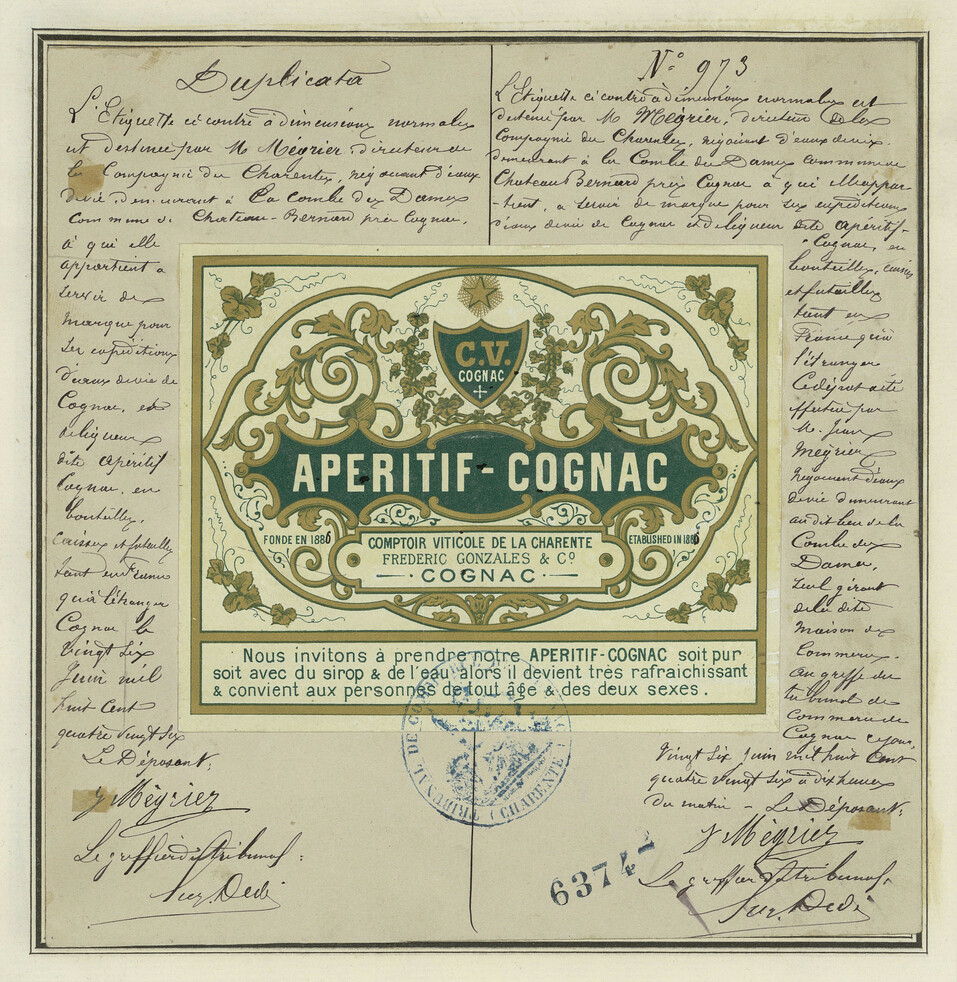 Duplicata
L'Etiquette ci contre à dimensions normales
est destinée par M Mégrier, directeur de
la Compagnie des Charentes, négociant d'eaux
devie, demeurant à La combe des Dames
Commune de Chateau-Bernard près Cognac,
à qui elle
appartient a
servir de
marque pour
ses expéditions
d'eaux devie de
Cognac, et
de liqueurs
dite apéritif
Cognac, en
bouteilles,
caisses et futailles
tant en France
qu'à l'étranger
Cognac le
vingt six
Juin mil
huit cent
quatre vingt six
Le Déposant,
J Mégrier
Le greffier du tribunal,
N° 973
L'Etiquette ci contre à dimensions normales est
destinée par M Mégrier, directeur de la
Compagnie des Charentes, négociant d'eaux devie,
demeurant à la Combe des Dames commune de
Chateau Bernard près Cognac à qui elle appar-
-tient, a servir de marque pour ses expéditions
d'eaux devie de Cognac et de liqueur dite apéritif-
Cognac, en
bouteilles, caisses
et futailles
tant en
France qu'à
l'étranger
Ce dépot a été
effectué par
M. Jean
Mégrier
Négociant d'eaux
devie demeurant
au dit lieu de la
Combe des
Dames,
seul gérant
de la dite
maison de
Commerce.
au greffe du
tribunal de
Commerce de
Cognac ce jour,
vingt six Juin mil huit cent
quatre vingt six à dix heures
du matin - Le Déposant,
J Mégrier
Le greffier du tribunal,
C.V.
COGNAC
APERITIF-COGNAC
FONDE EN 1886
COMPTOIR VITICOLE DE LA CHARENTE
ETABLISHED IN 1886
FREDERIC GONZALES & Cº
COGNAC
Nous invitons à prendre notre APERITIF-COGNAC soit pur
soit avec du sirop & de l'eau alors il devient très rafraichissant
& convient aux personnes de tout âge & des deux sexes.
TRIBUNAL DE COMMERCE
(CHARENTE)
6374